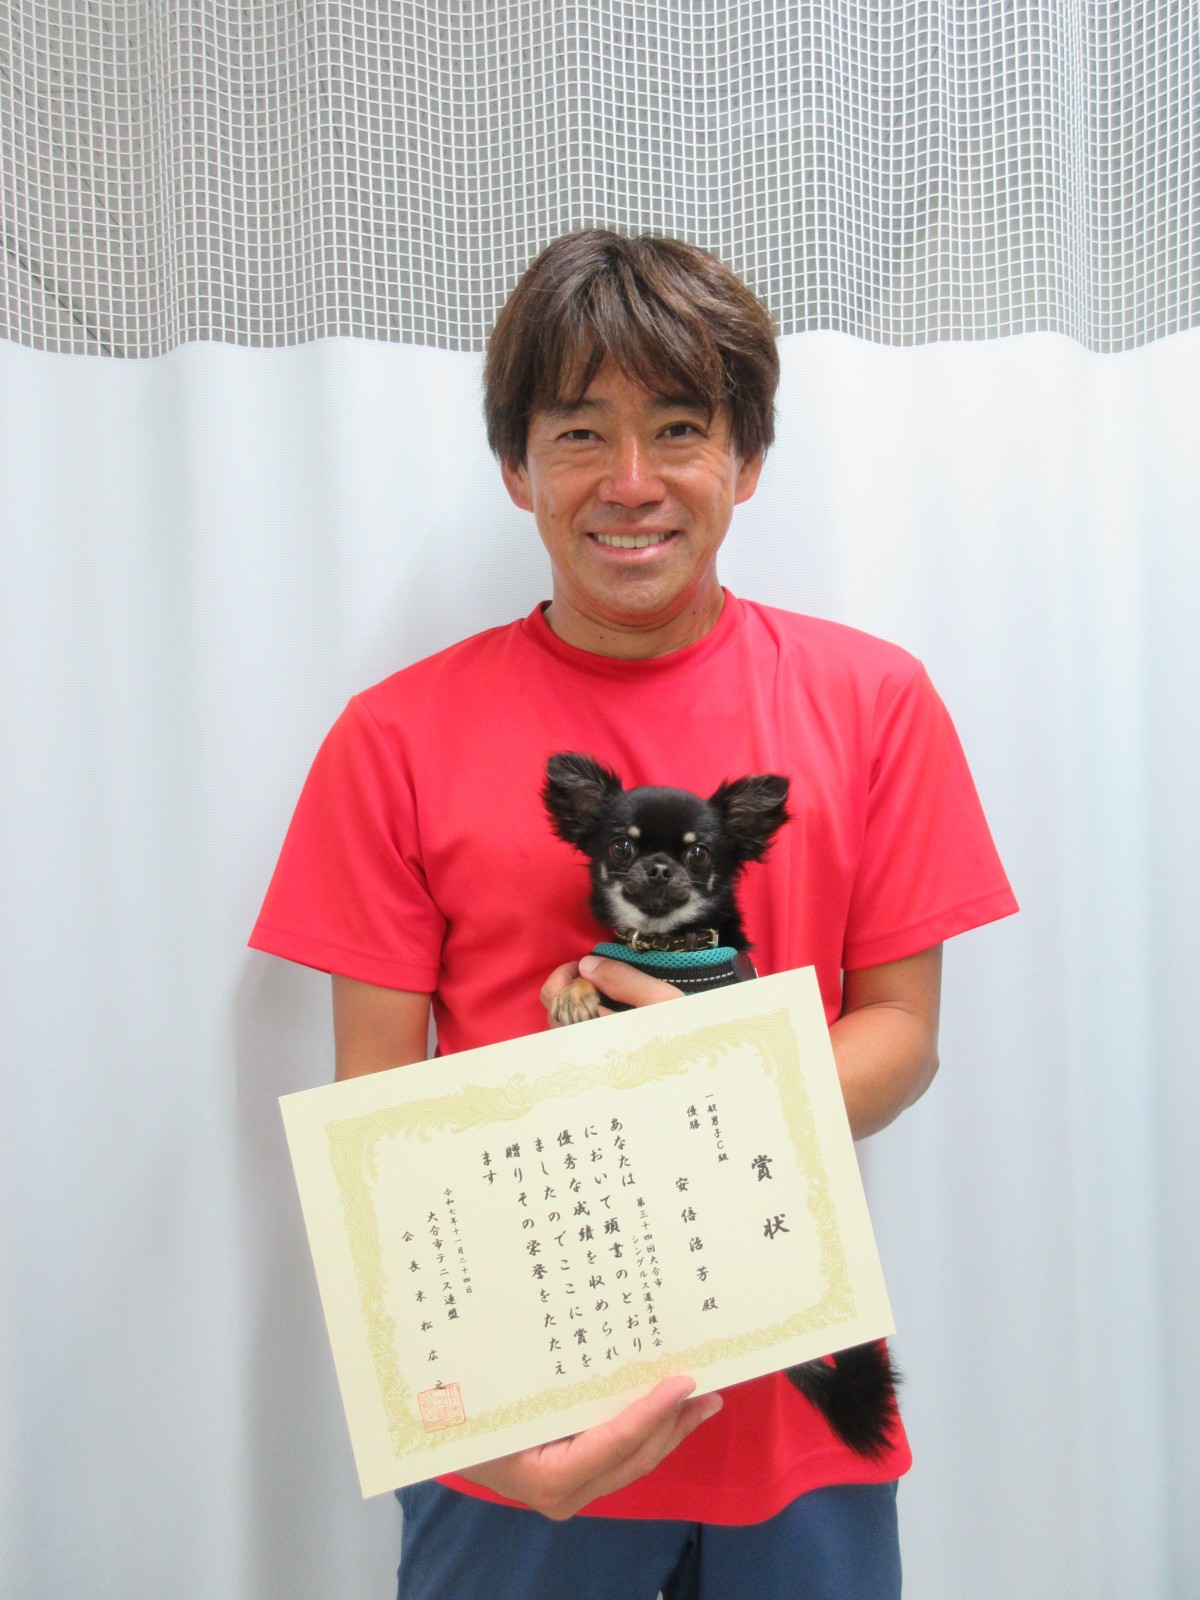 賞状
一般男子C組
優勝
安倍治芳殿
第三十四回大分市
シングルス選手権大会
あなたは
において頭書のとおり
優秀な成績を収められ
ましたのでここに賞を
贈りその栄誉をたたえ
ます
令和七年十一月二十四日
大分市テニス連盟
会長末松広之